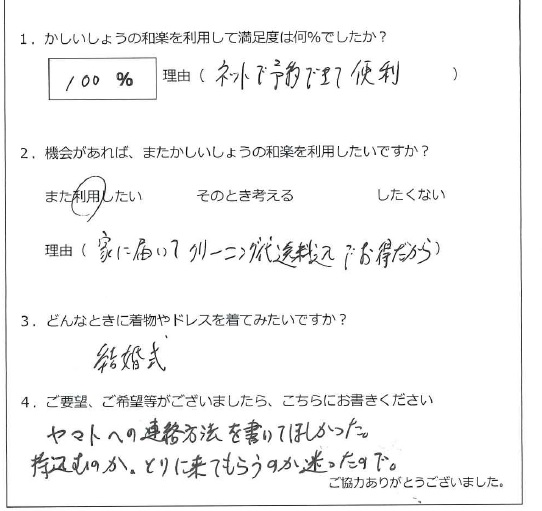 1．かしいしょうの和楽を利用して満足度は何%でしたか？
100 % 理由（ ネットで予約できて便利 ）
2．機会があれば、またかしいしょうの和楽を利用したいですか？
また利用したい そのとき考える したくない
理由（ 家に届いて クリーニング代送料込みでお得だから）
3．どんなときに着物やドレスを着てみたいですか？
結婚式
4．ご要望、ご希望等がございましたら、こちらにお書きください
ヤマトへの連絡方法を書いてほしかった。
持込むのか、とりに来てもらうのか迷ったので。
ご協力ありがとうございました。